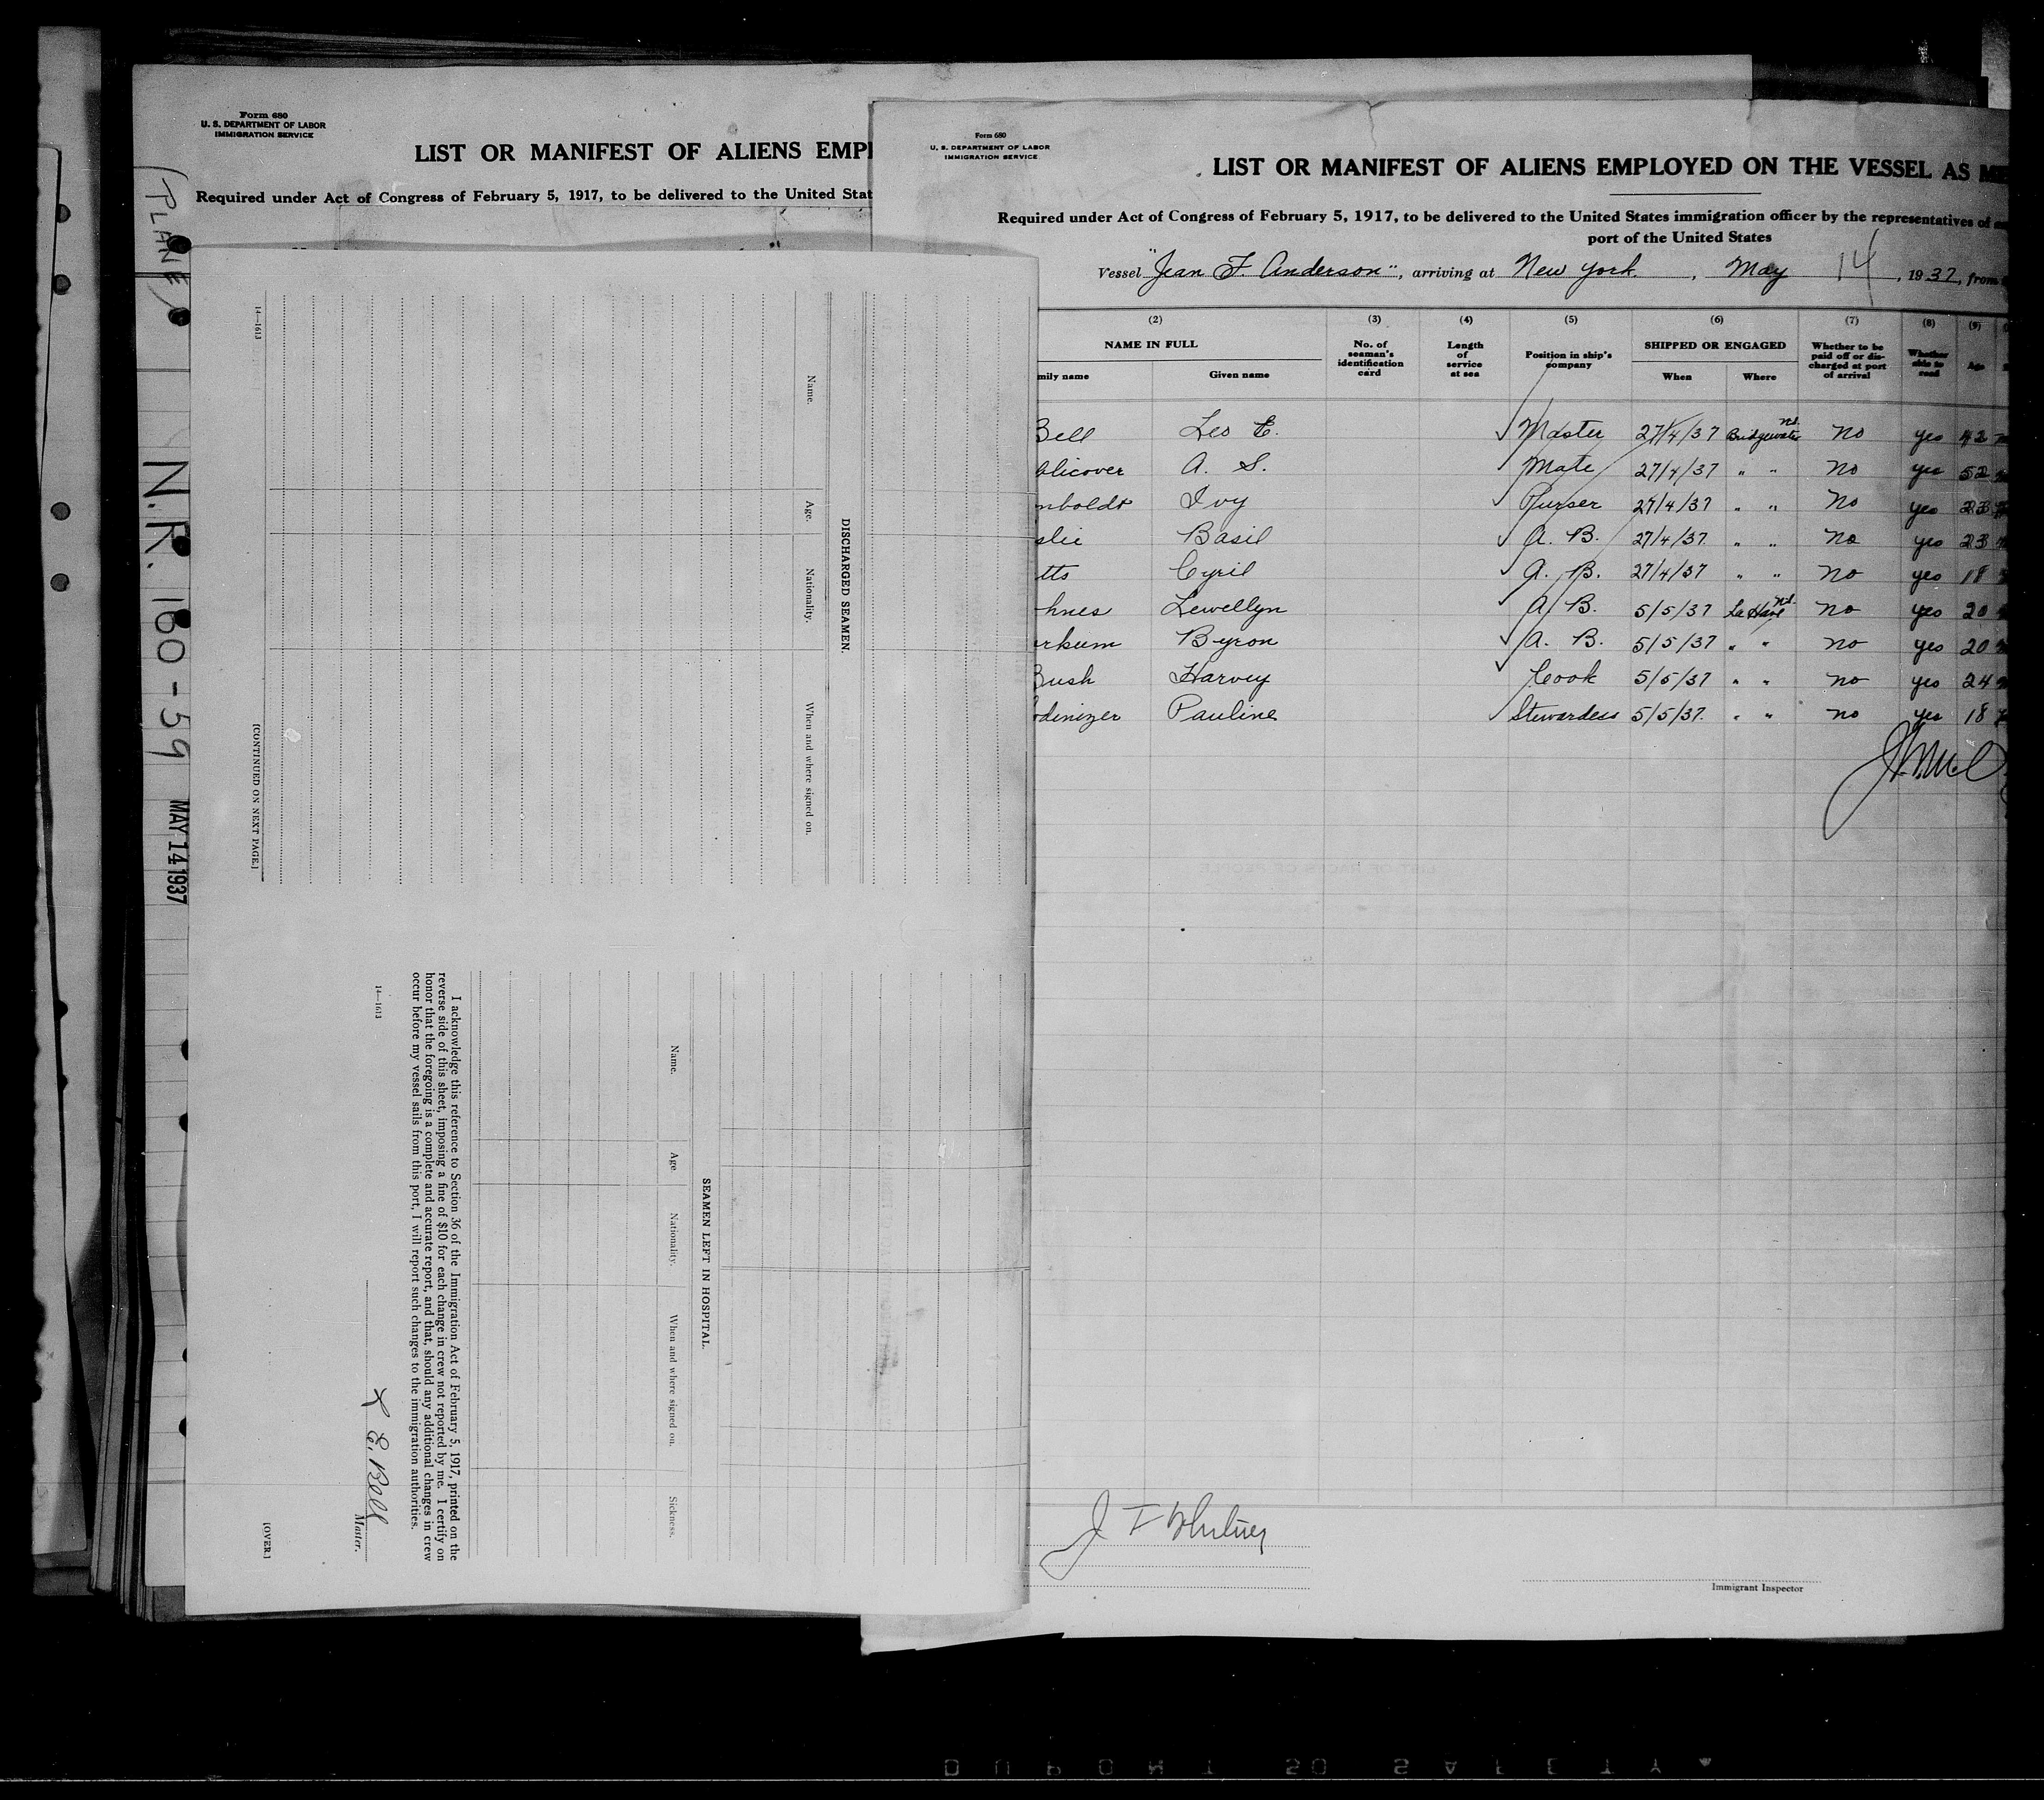 Form 680
U. S. DEPARTMENT OF LABOR
IMMIGRATION SERVICE
LIST OR MANIFEST OF ALIENS EMPL
Required under Act of Congress of February 5, 1917, to be delivered to the United Stat
(PLANE)
N.R. 160-59
MAY 14 1937
14—1613
[CONTINUED ON NEXT PAGE.]
DISCHARGED SEAMEN.
Name. Age. Nationality. When and where signed on.
SEAMEN LEFT IN HOSPITAL.
Name. Age Nationality. When and where signed on. Sickness.
I acknowledge this reference to Section 36 of the Immigration Act of February 5, 1917, printed on the
reverse side of this sheet, imposing a fine of $10 for each change in crew not reported by me. I certify on
honor that the foregoing is a complete and accurate report, and that, should any additional changes in crew
occur before my vessel sails from this port, I will report such changes to the immigration authorities.
14—1613
L E. Bell
Master.
[OVER.]
Form 680
U. S. DEPARTMENT OF LABOR
IMMIGRATION SERVICE
LIST OR MANIFEST OF ALIENS EMPLOYED ON THE VESSEL AS ME
Required under Act of Congress of February 5, 1917, to be delivered to the United States immigration officer by the representatives of
port of the United States
Vessel "Jean F. Anderson", arriving at New York, May 14, 1937, from
(2) (3) (4) (5) (6) (7) (8) (9)
NAME IN FULL No. of seaman's identification card Length of service at sea Position in ship's company SHIPPED OR ENGAGED Whether to be paid off or discharged at port of arrival Whether able to read Age
mily name Given name When Where
Bell Leo E. Master 27/4/37 Bridgewater N.S. No yes 42
alicover A. S. Mate 27/4/37 " " No yes 52
mboldt Ivy Purser 27/4/37 " " No yes 23
slie Basil A. B. 27/4/37 " " No yes 23
tts Cyril A. B. 27/4/37 " " No yes 18
hnes Lewellyn A B. 5/5/37 La Have N.S. No yes 20
rkum Byron A. B. 5/5/37 " " no yes 20
Bush Harvey Cook 5/5/37 " " no yes 24
odinizer Pauline Stewardess 5/5/37 " " no yes 18
Immigrant Inspector
DUPONT SO SAFETY